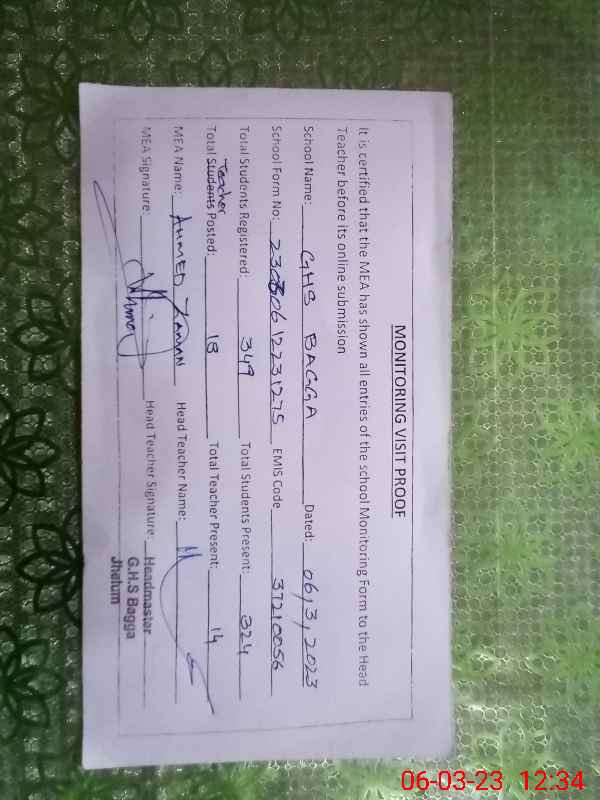 MONITORING VISIT PROOF
It is certified that the MEA has shown all entries of the school Monitoring Form to the Head
Teacher before its online submission
School Name: GHS BAGGA Dated: 06,3,2023
School Form No: 2303061223127S EMIS Code 37210056
Total Students Registered: 349 Total Students Present: 324
Teacher
Total Students Posted: 18 Total Teacher Present: 14
MEA Name: AHMED ZAMAN Head Teacher Name:
MEA Signature: Head Teacher Signature: Headmaster
G.H.S Bagga
Jhelum
06-03-23 12:34